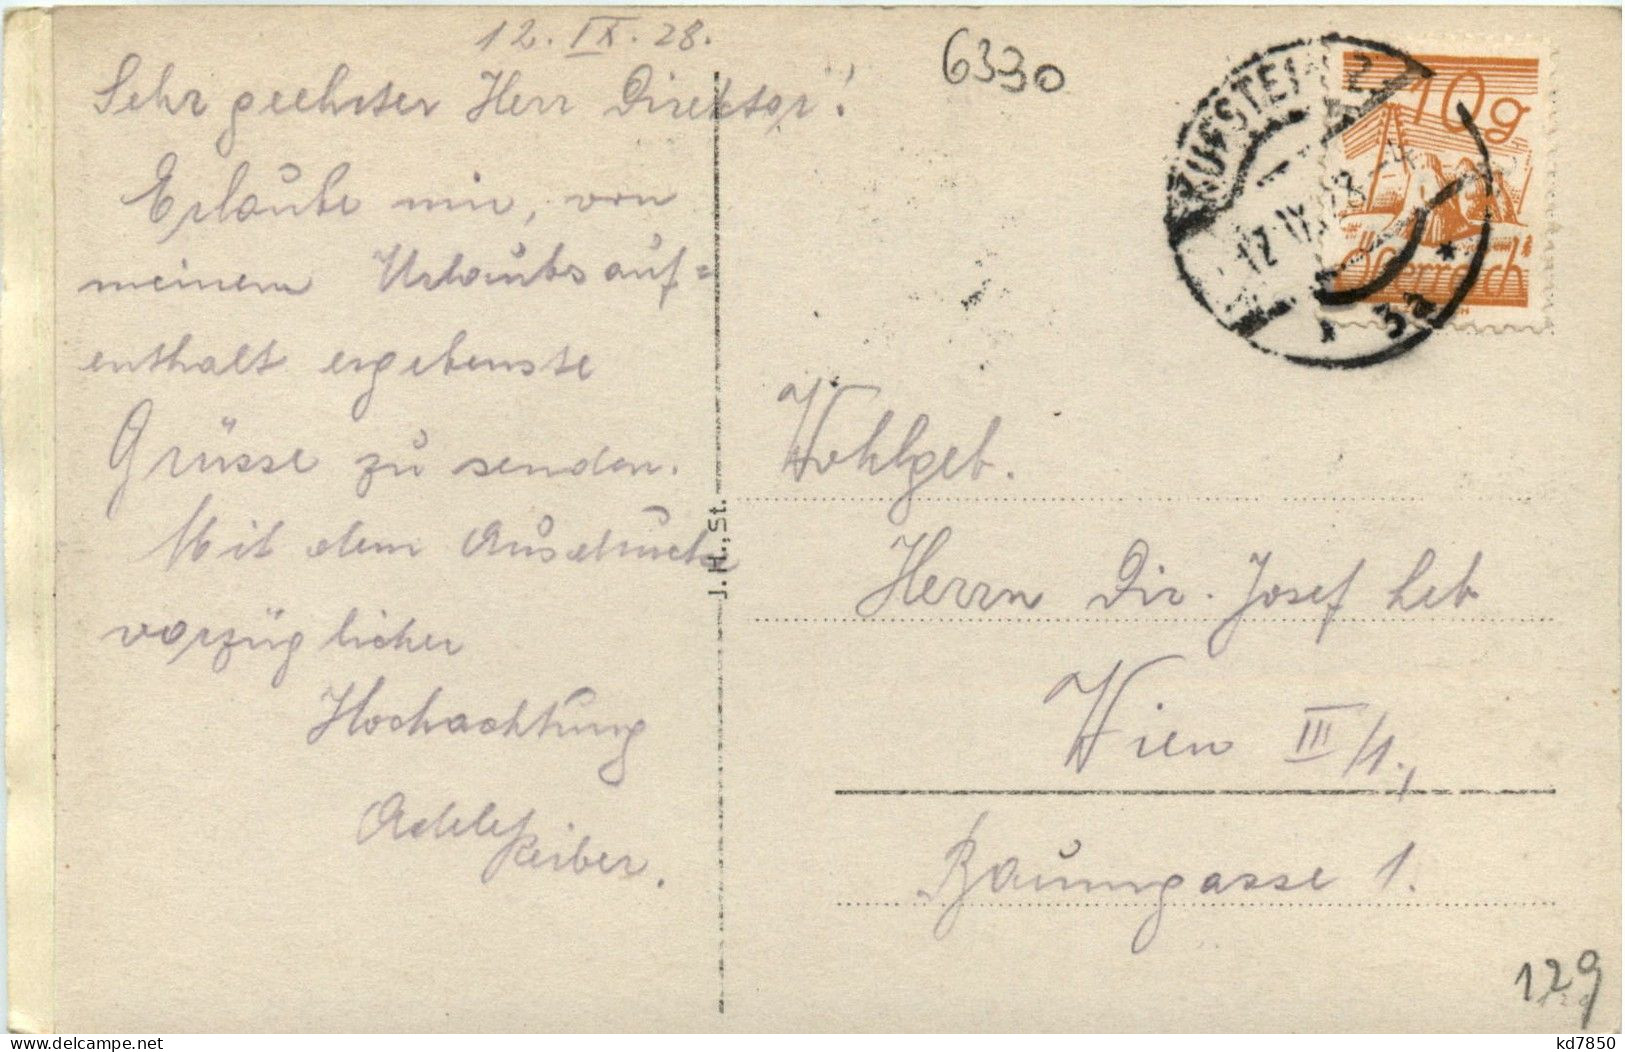 12. IX. 28.
Sehr geehrter Herr Direktor!
Erlaube mir, von
meinem Urlaubsauf=
enthalt ergebenste
Grüsse zu senden.
Mit dem Ausdrucke
vorzüglicher
Hochachtung
Adele
Reiber.
J. H., St.
6330
KUFSTEIN 2
12.IX.28
* 3a *
10g
Österreich
Wohlgeb.
Herrn Dir. Josef Leb
Wien III/1.,
Baumgasse 1.
129
kd7850